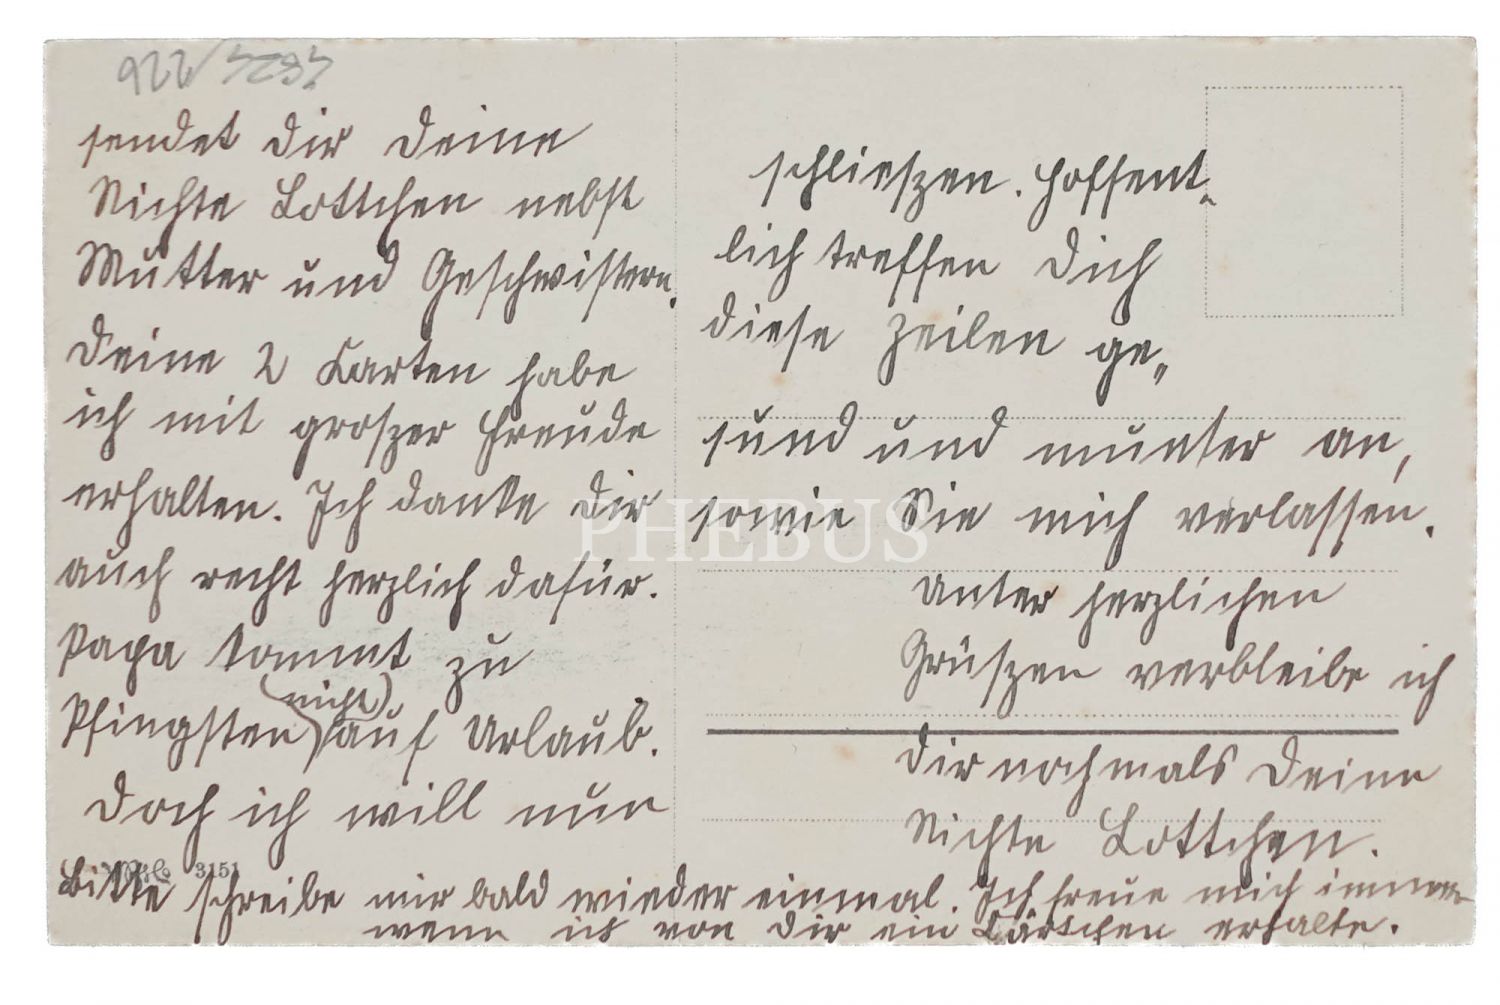 922/
sendet Dir Deine
Nichte Lottchen nebst
Mutter und Geschwistern.
Deine 2 Karten habe
ich mit groszer Freude
erhalten. Ich danke Dir
auch recht herzlich dafür.
Papa kommt zu
(nicht)
Pfingsten auf Urlaub.
Doch ich will nun
schlieszen. Hoffent-
lich treffen Dich
diese Zeilen ge„
sund und munter an,
sowie Sie mich verlassen.
Unter herzlichen
Grüszen verbleibe ich
Dir nochmals Deine
Nichte Lottchen.
3151
Bitte schreibe mir bald wieder einmal. Ich freue mich immer
wenn ich von Dir ein Kärtchen erhalte.
PHEBUS